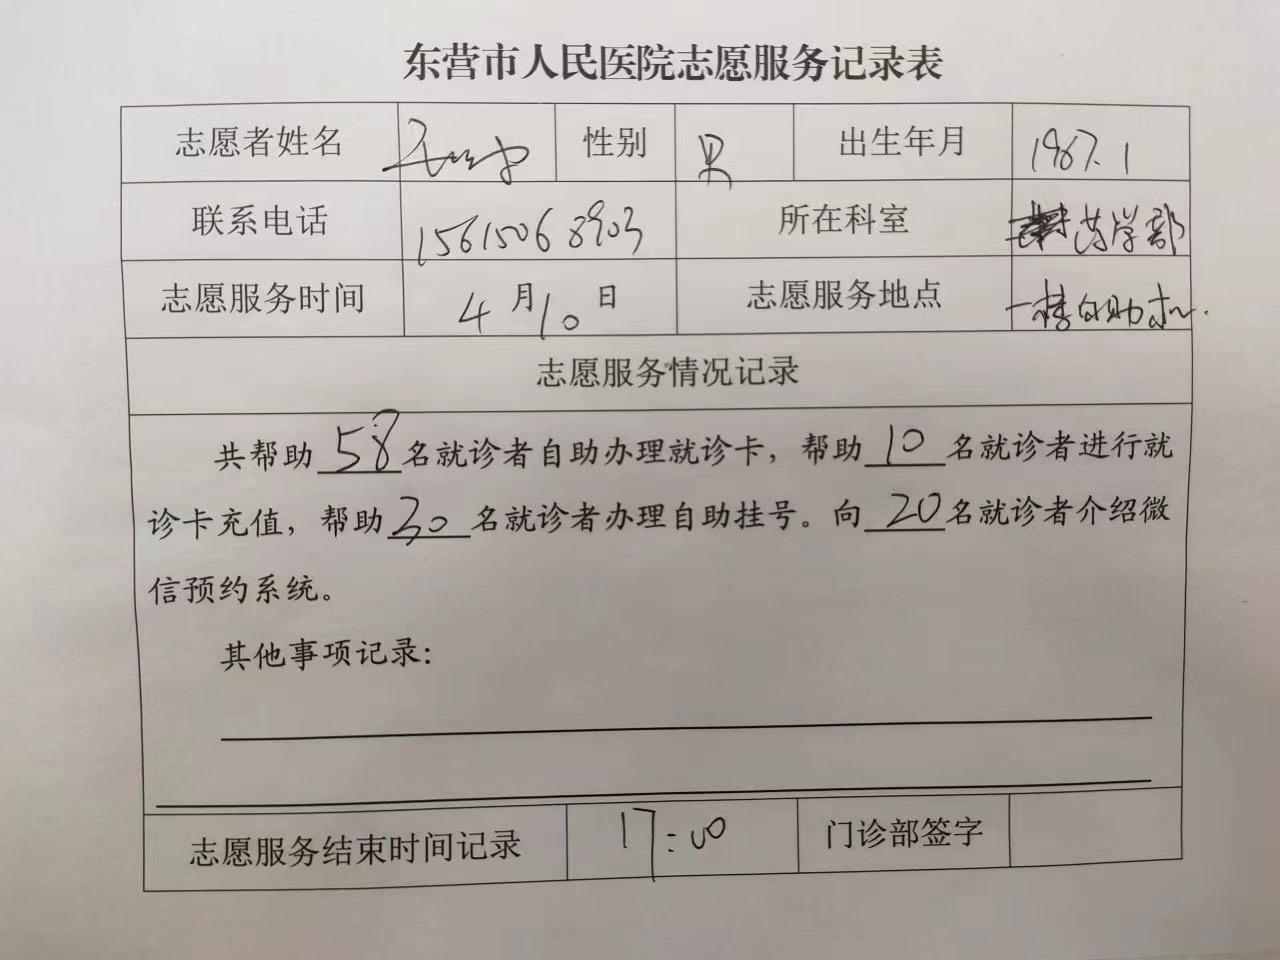 东营市人民医院志愿服务记录表
志愿者姓名 性别 男 出生年月 1967.1
联系电话 15615068903 所在科室 药学部
志愿服务时间 4月10日 志愿服务地点 一楼自助机.
志愿服务情况记录
共帮助58名就诊者自助办理就诊卡，帮助10名就诊者进行就
诊卡充值，帮助30名就诊者办理自助挂号。向20名就诊者介绍微
信预约系统。
其他事项记录：
志愿服务结束时间记录 17:00 门诊部签字